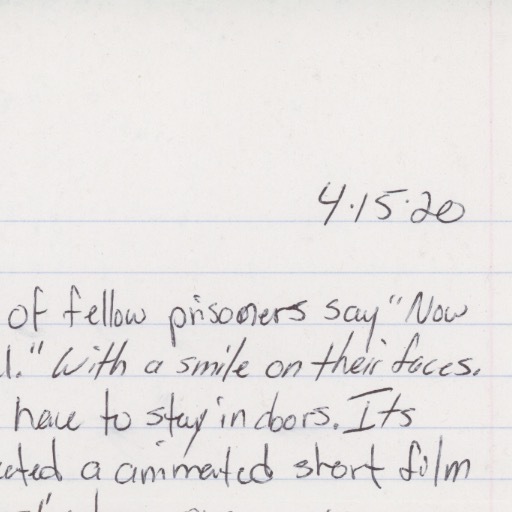 4.15.20
of fellow prisoners say "Now
." With a smile on their faces.
have to stay indoors. Its
a animated short film